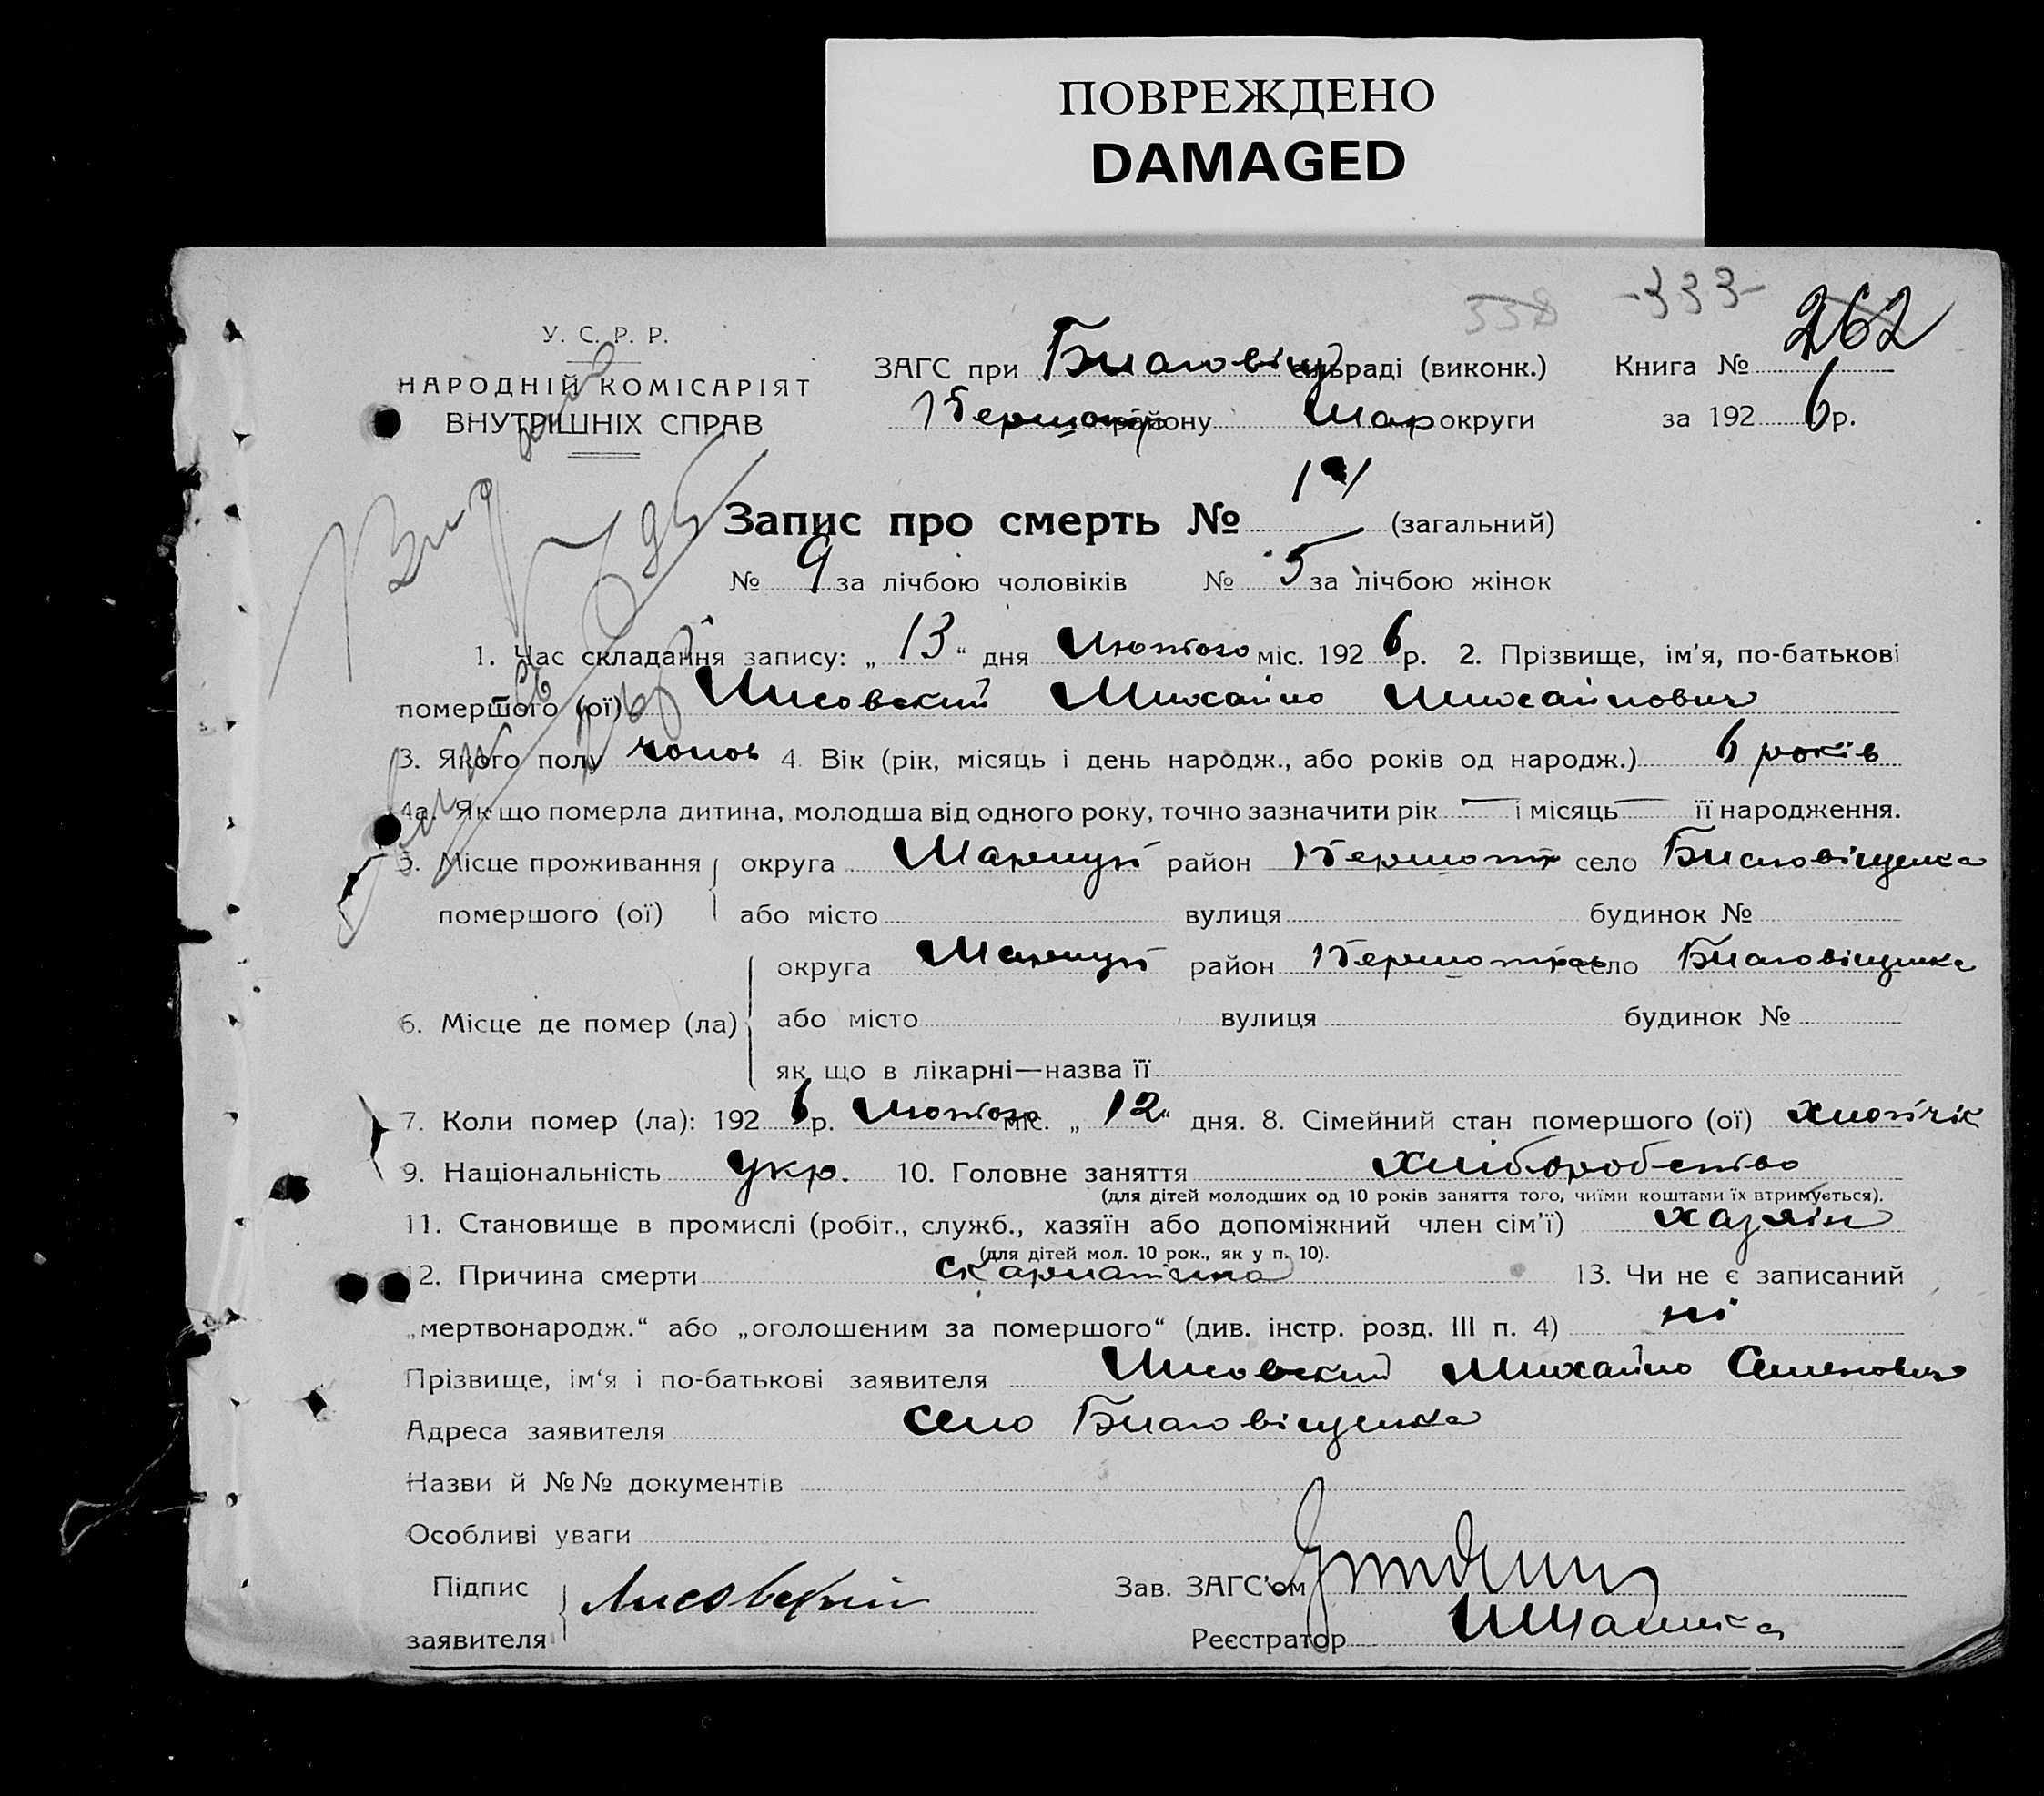 ПОВРЕЖДЕНО
DAMAGED
-333- 262
У. С. Р. Р.
НАРОДНІЙ КОМІСАРІЯТ
ВНУТРІШНІХ СПРАВ
ЗАГС при Благовіщ сільраді (виконк.) Книга №
району Мар округи за 192 6 р.
Запис про смерть № 14 (загальний)
№ 9 за лічбою чоловіків № 5 за лічбою жінок
1. Час складання запису: „ 13 “ дня Лютого міс. 192 6 р. 2. Прізвище, ім'я, по-батькові
помершого (ої) Лисовский Михайло Михайлович
3. Якого полу чолов 4. Вік (рік, місяць і день народж., або років од народж.) 6 років
4а. Як що померла дитина, молодша від одного року, точно зазначити рік — і місяць — її народження.
5. Місце проживання округа Маріюп район село Благовіщенка
помершого (ої) або місто вулиця будинок №
округа Маріюп район село Благовіщенка
6. Місце де помер (ла) або місто вулиця будинок №
як що в лікарні—назва її
7. Коли помер (ла): 192 6 р. Лютого міс. „ 12 “ дня. 8. Сімейний стан помершого (ої) хлопчік
9. Національність укр. 10. Головне заняття хліборобство
(для дітей молодших од 10 років заняття того, чиїми коштами їх втримується).
11. Становище в промислі (робіт., служб., хазяїн або допоміжний член сім'ї) хазяїн
(для дітей мол. 10 рок., як у п. 10).
12. Причина смерти скарлатина 13. Чи не є записаний
„мертвонародж.“ або „оголошеним за помершого“ (див. інстр. розд. III п. 4) ні
Прізвище, ім'я і по-батькові заявителя Лисовский Михайло Семенович
Адреса заявителя село Благовіщенка
Назви й №№ документів
Особливі уваги
Підпис Зав. ЗАГС'ом
заявителя Лисовский Реєстратор